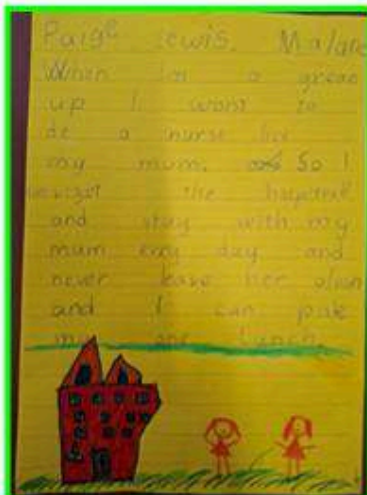 Paige Lewis. Malare
When im a grean
up I want to
de a nurse like
my mum. So I
the hospital
and stay with my
mum evry day and
never leave her alone
and I can pak
my one Lunch.